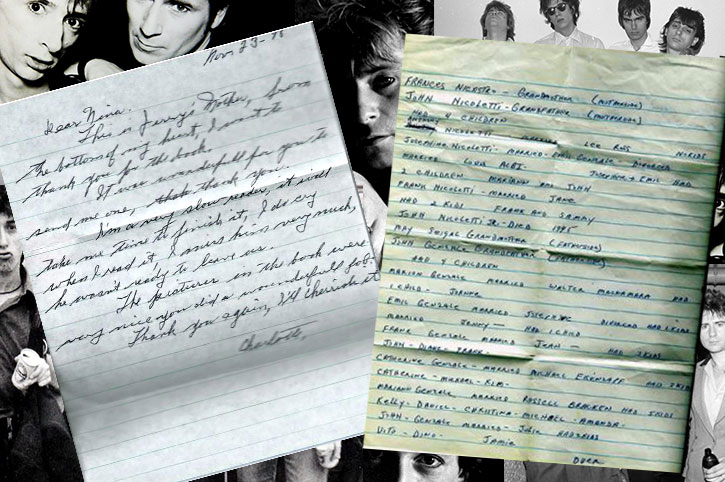 Nov 23-98
Dear Nina,
This is Jerry's Mother, from
the bottom of my heart, I want to
thank you for the book.
It was wonderfull for you to
send me one, thank you.
I'm a very slow reader, it will
take me time to finish it, I do cry
when I read it, I miss him very much,
he wasn't ready to leave us.
The pictures in the book were
very nice you did a wonderfull job.
Thank you again, I'll cherish it
Charlotte,
FRANCES NICOLETTI - GRANDMOTHER
JOHN NICOLETTI - GRANDFATHER
HAD 4 CHILDREN
NICOLETTI LEE ROSS NO KIDS
JOSEPHINE NICOLETTI - MARRIED - EMIL GENZALE DIVORCED
MARRIED LOUIE ALBI JOSEPHINE + EMIL HAD
2 CHILDREN MARIANN AND JOHN
FRANK NICOLETTI - MARRIED JANE
HAD 2 KIDS FRANK AND SAMMY
JOHN NICOLETTI JR - DIED 1985
MAY GRANDMOTHER
JOHN GENZALE - GRANDFATHER
HAD 4 CHILDREN
MARION GENZALE MARRIED WALTER MACNAMARA HAD
1 CHILD - JOANNE
EMIL GENZALE MARRIED DIVORCED HAD 2 KIDS
MARRIED JENNY - HAD 1 CHILD
FRANK GENZALE MARRIED JEAN - HAD 3 KIDS
JOHN - DIANE - FRANK -
CATHERINE GENZALE - MARRIED MICHAEL HAD 3 KIDS
CATHERINE - MICHAEL - KIM -
MARIANN GENZALE MARRIED RUSSELL BRACKEN HAD 5 KIDS
KELLY - DANIEL - CHRISTINA - MICHAEL - AMANDA -
JOHN - GENZALE MARRIED - JULIE HAD 3 KIDS
VITO - DINO - JAMIE
OVER